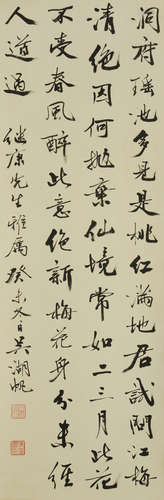 洞府瑶池多是桃红满地君试问江梅
清绝因何抛弃仙境常如二三月此花
不受春风醉此意绝新梅花身分未经
人道过　继康先生雅属癸未冬日吴湖帆